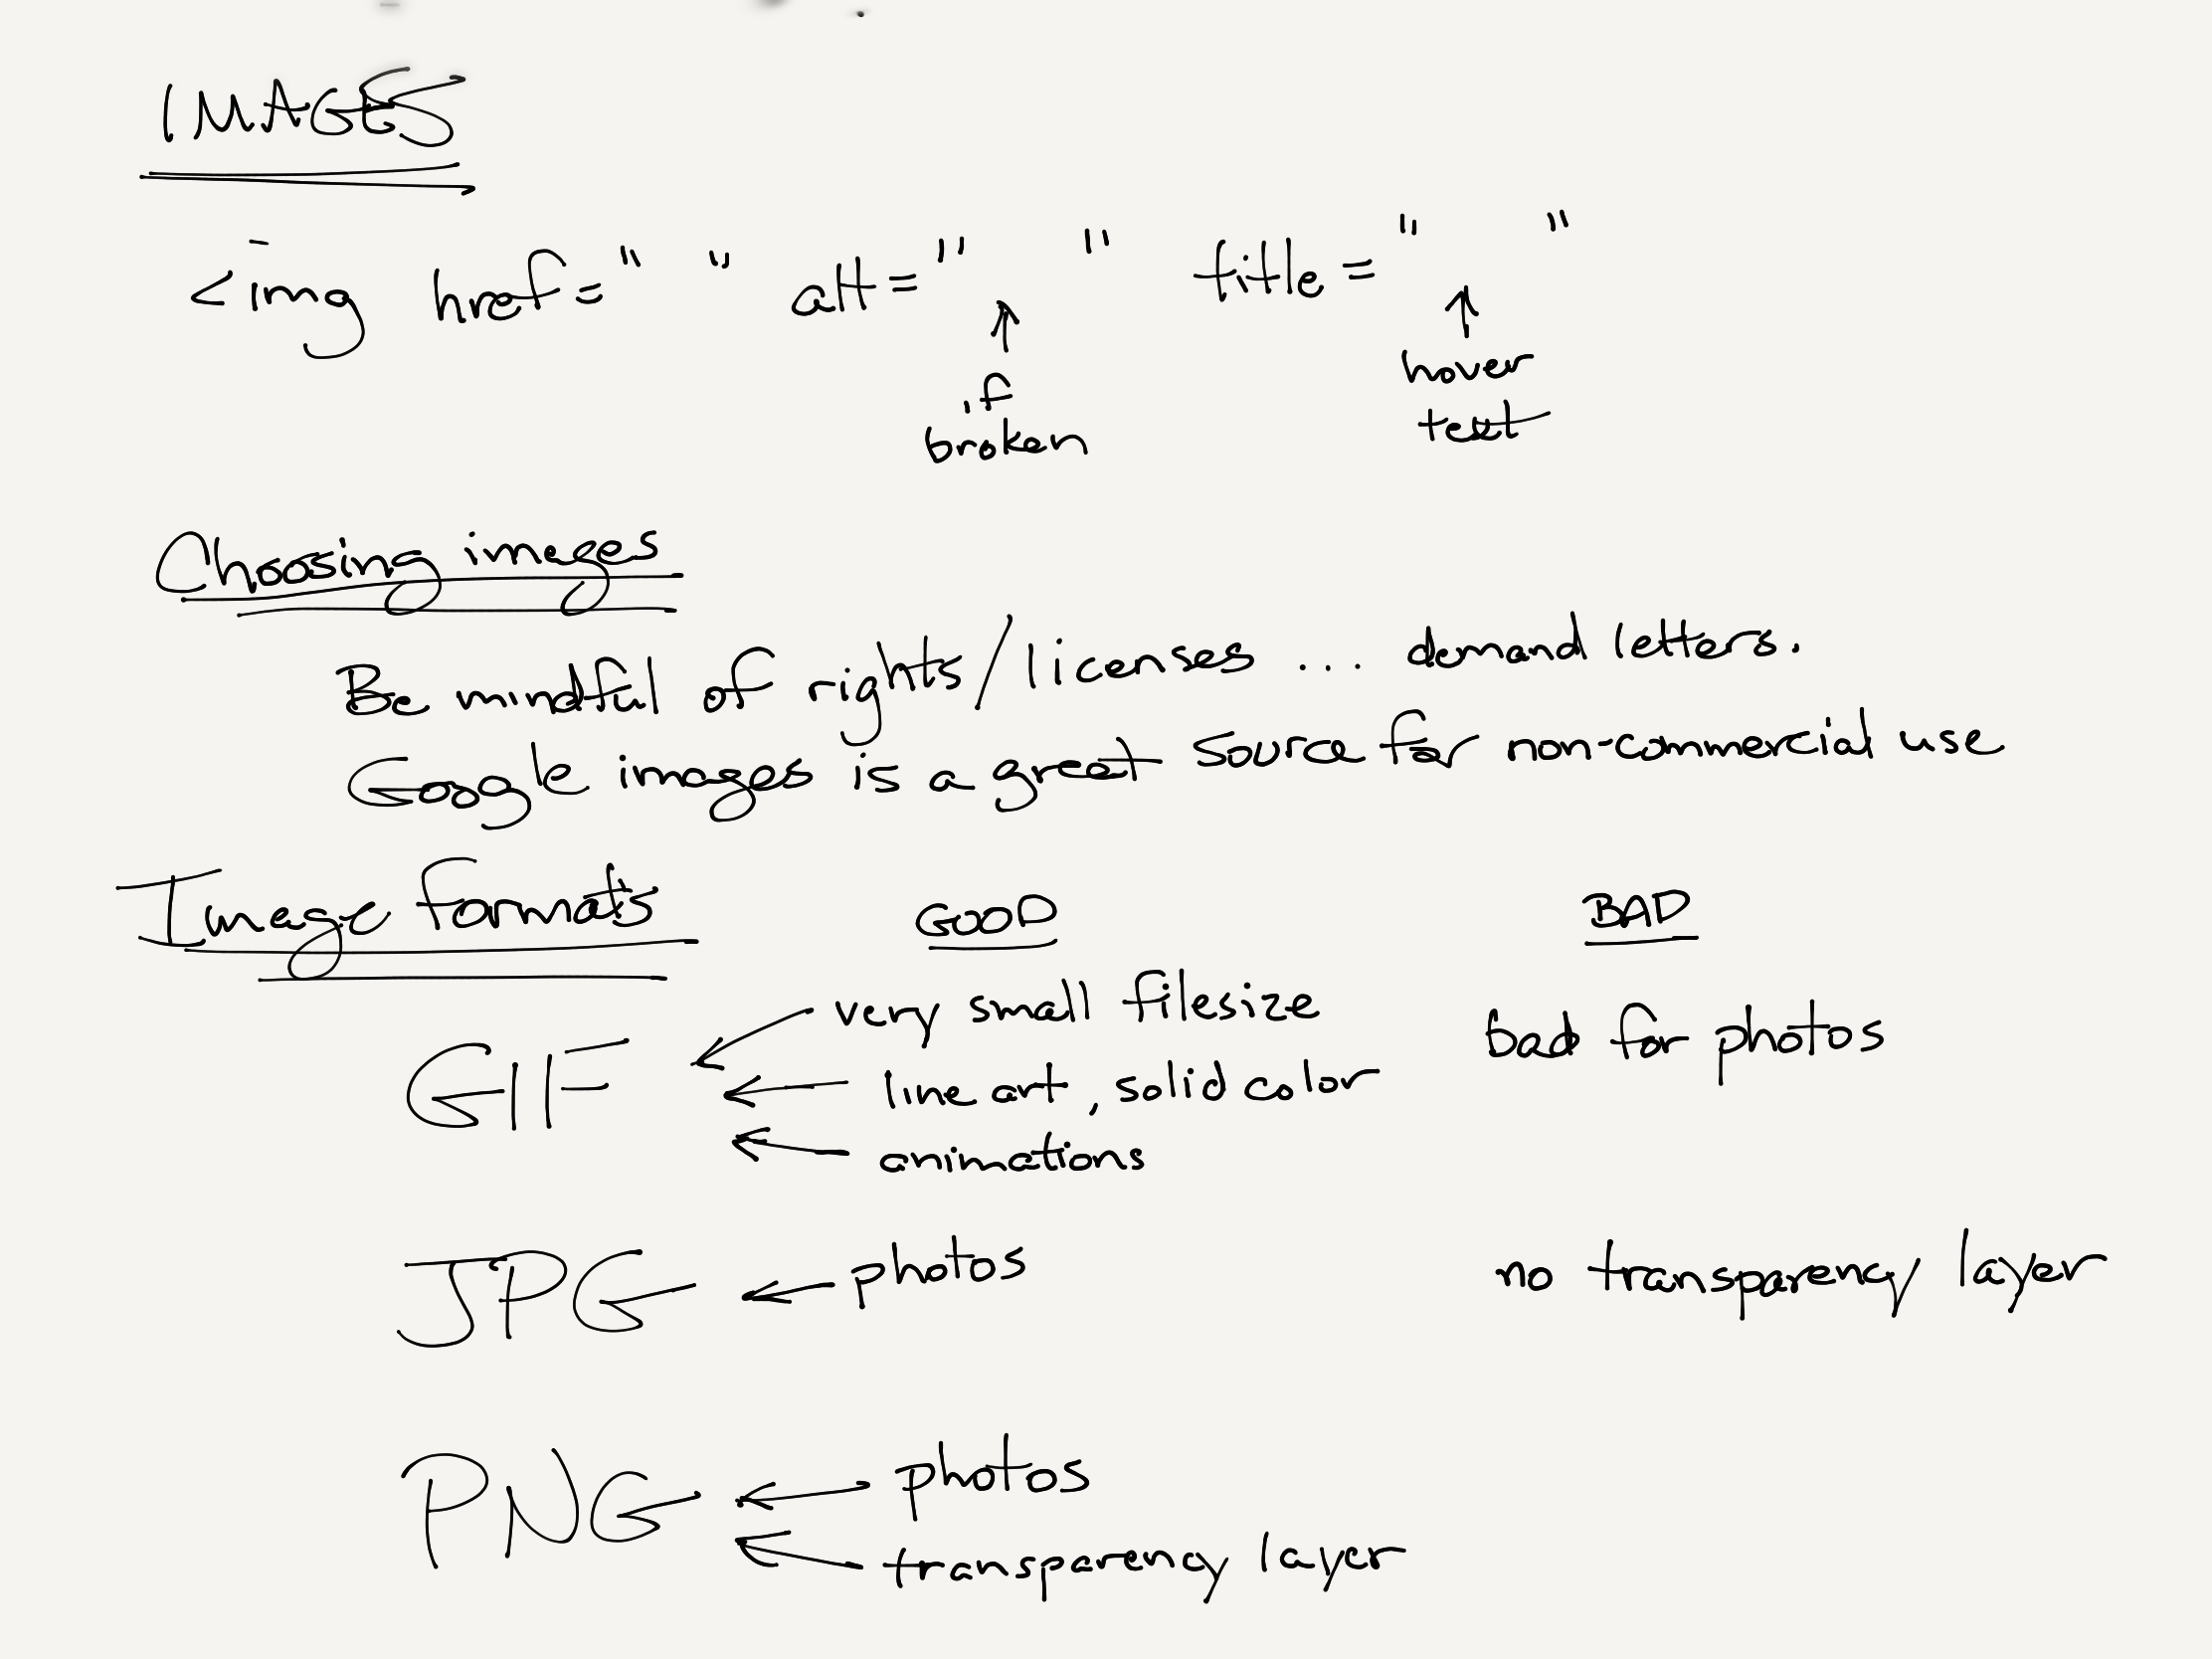 IMAGES
<img href=" " alt=" " title=" "
if
broken
hover
text
Choosing images
Be mindful of rights/licenses ... demand letters.
Google images is a great source for non-commercial use
Image formats GOOD BAD
GIF very small filesize bad for photos
line art, solid color
animations
JPG photos no transparency layer
PNG photos
transparency layer